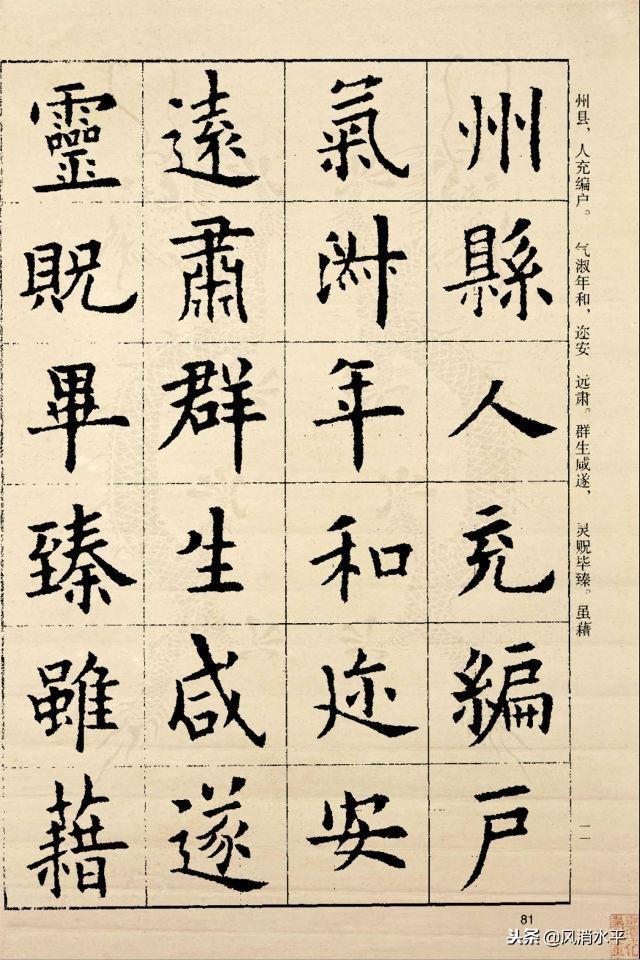 州縣人充編戶
氣淑年和迩安
遠肅群生咸遂
靈貺畢臻雖藉
州县，人充编户。 气淑年和，迩安 远肃。群生咸遂， 灵贶毕臻。虽藉
一一
81
头条 @风消水平